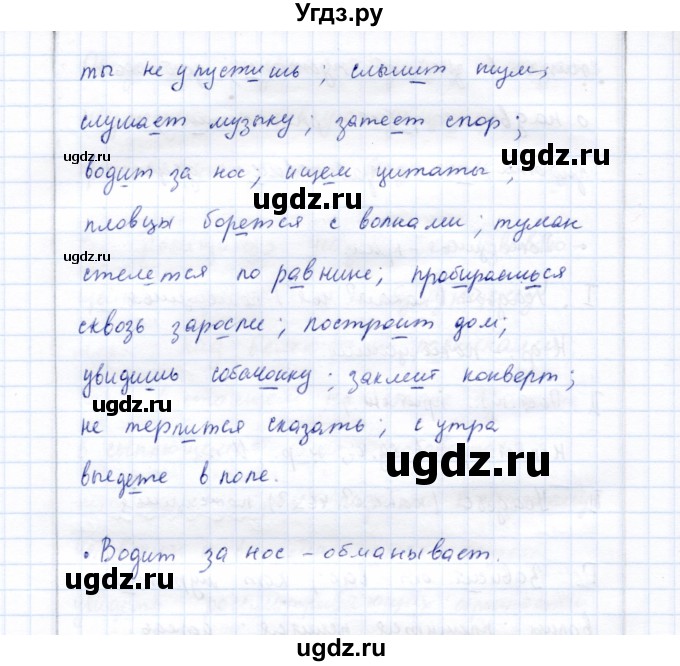 Угдз.ру
ты не упустишь; слышит шум;
слушает музыку; затеет спор;
водит за нос; ищем цитаты;
пловцы борется с волнами; туман
стелется по равнине; пробираешься
сквозь заросли; построит дом;
увидишь собачонку; заклеит конверт;
не терпится сказать; с утра
выедете в поле.
• Водит за нос – обманывает.
ugdz.ru
ugdz.ru
ugdz.ru
ugdz.ru
ugdz.ru
ugdz.ru
ugdz.ru
ugdz.ru
ugdz.ru